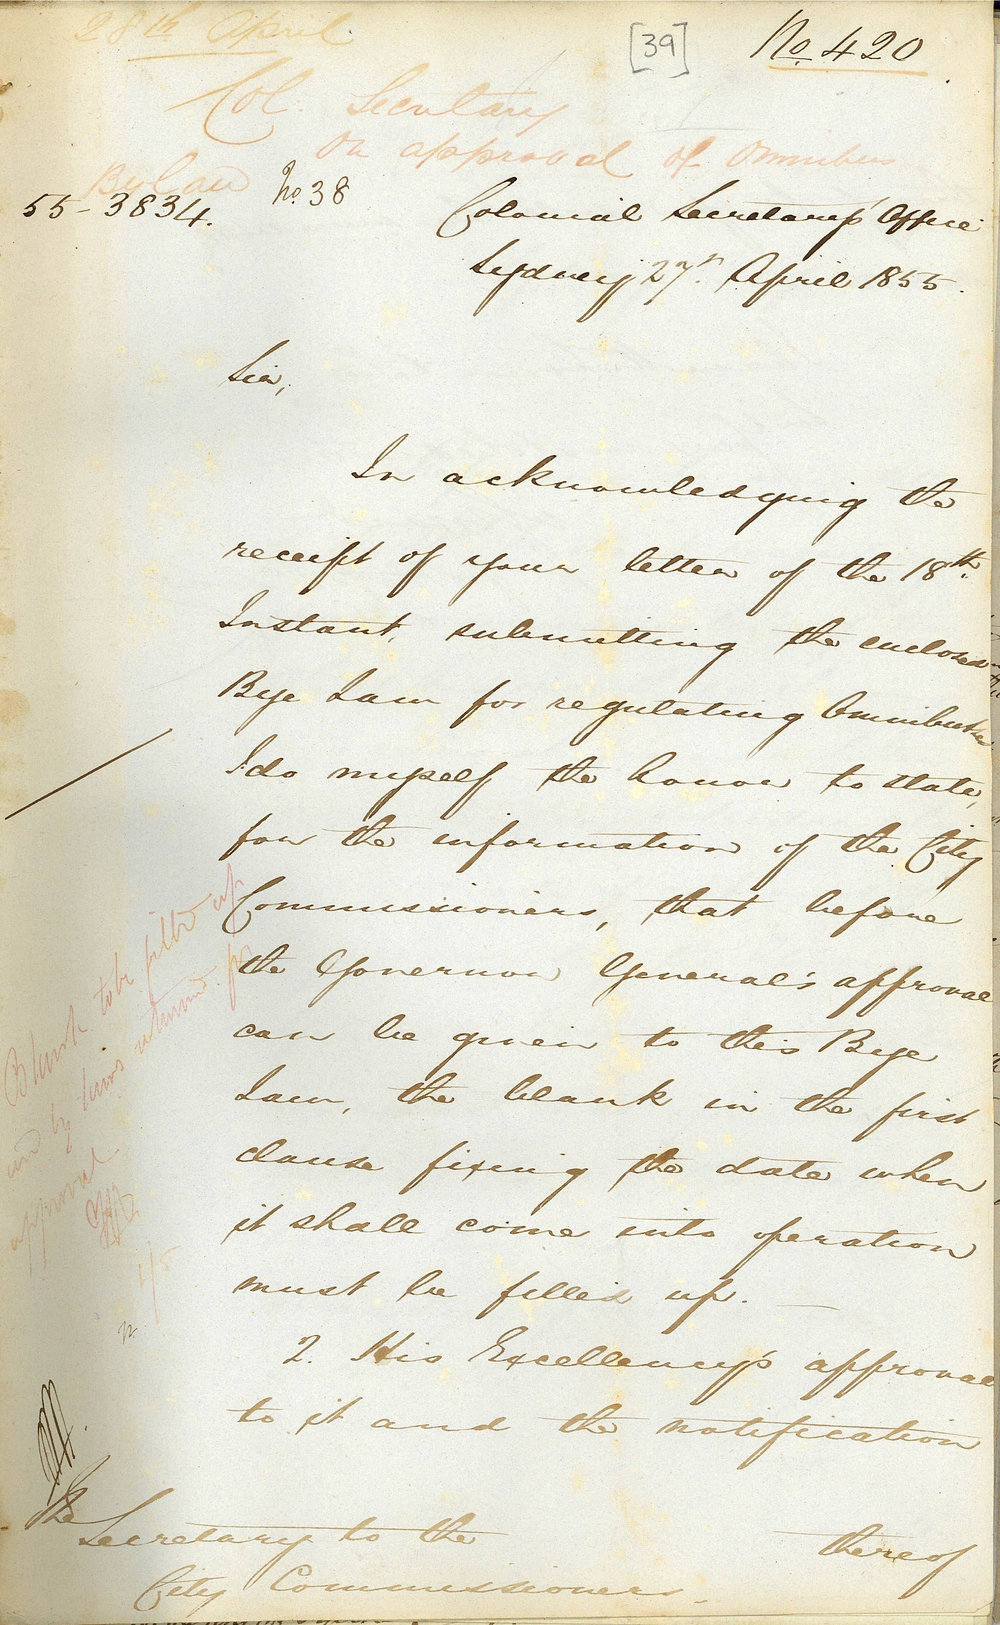 28th April.
[39]
No. 420
Col. Secretary
on approval of Omnibus
By Law
55-3834.
No. 38
Colonial Secretary's Office
Sydney 27th April 1855.
Sir,
In acknowledging the
receipt of your letter of the 18th
Instant, submitting the enclosed
Bye Law for regulating Omnibuses
I do myself the honor to state,
for the information of the City
Commissioners, that before
the Governor General's approval
can be given to this Bye
Law, the blank in the first
clause fixing the date when
it shall come into operation
must be filled up.
2. His Excellency's approval
to it and the notification
thereof
The
Secretary to the
City Commissioners.
Blank to be filled up
and by laws returned for
approval
1/5